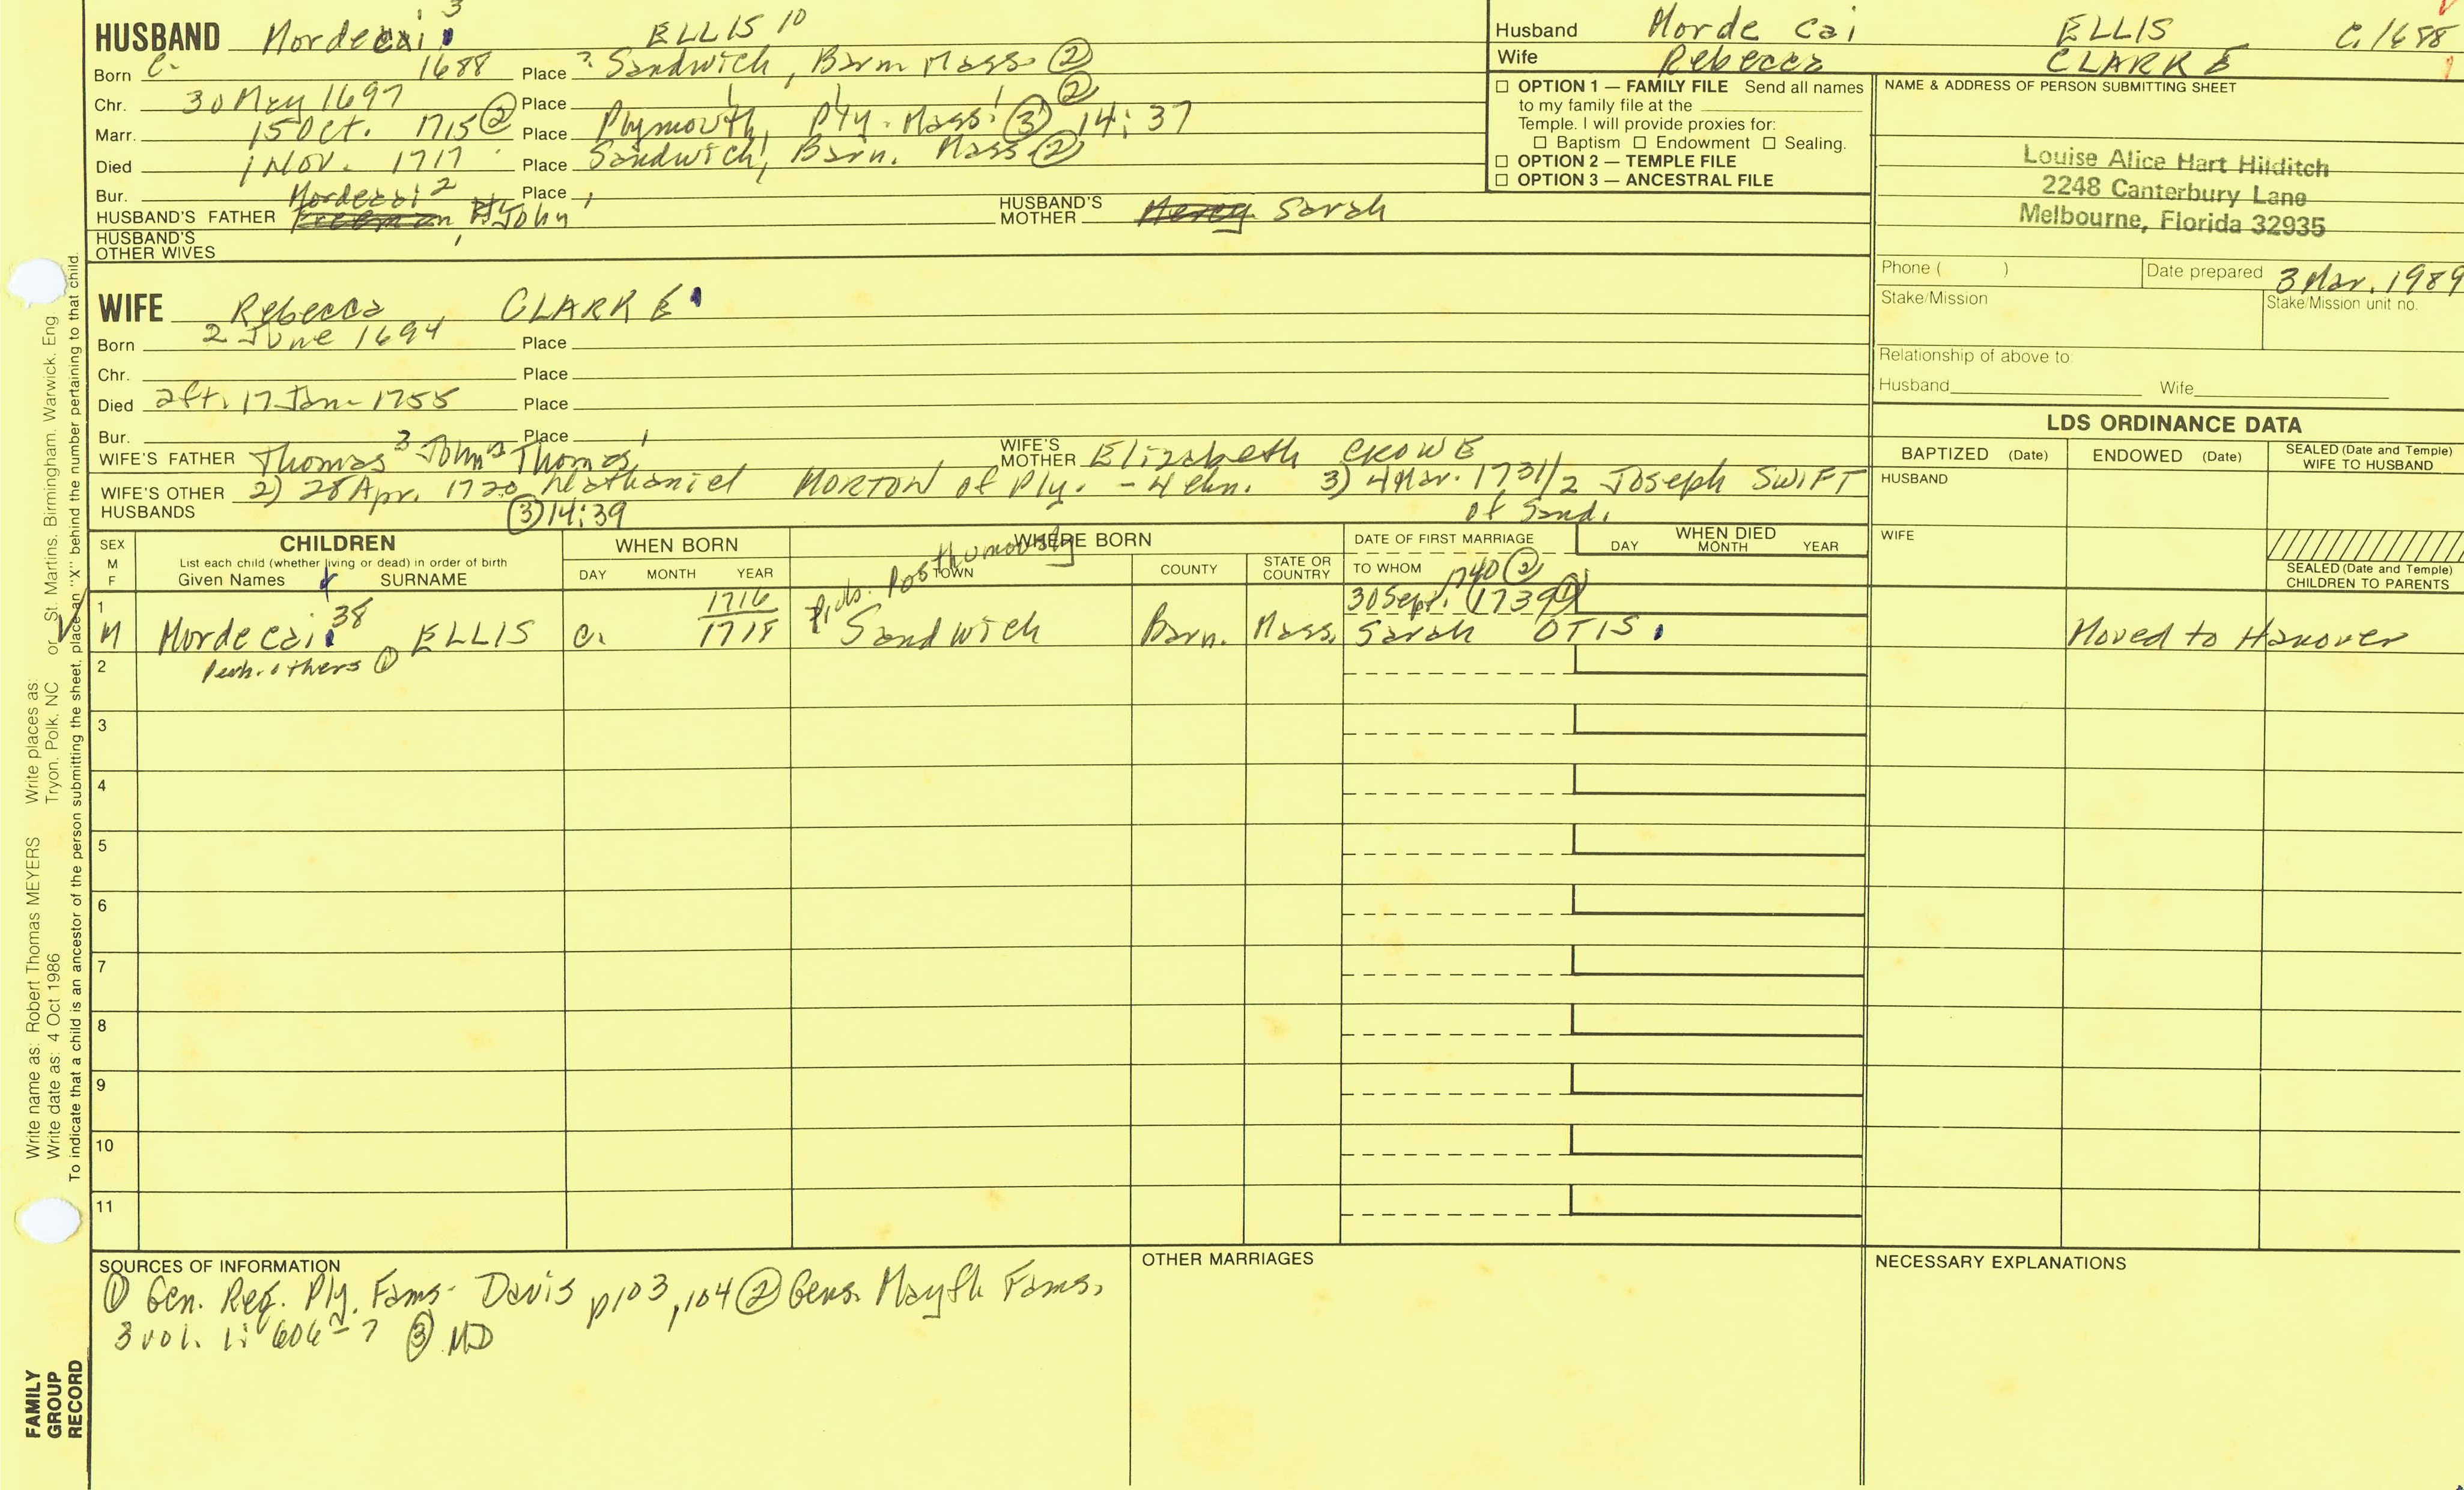 HUSBAND Mordecai 3 ELLIS 10
Born c. 1688 Place ? Sandwich, Barn Mass. ②
Chr. 30 May 1697 Place ②
Marr. 15 Oct. 1715 ② Place Plymouth, Ply. Mass. ③ 14:37
Died 1 Nov. 1717 Place Sandwich, Barn. Mass ②
Bur. Place
HUSBAND'S FATHER Mordecai 2 John 1
HUSBAND'S MOTHER Mercy Sarah
HUSBAND'S OTHER WIVES
WIFE Rebecca CLARKE
Born 2 June 1694 Place
Chr. Place
Died aft. 17 Jan 1755 Place
Bur. Place
WIFE'S FATHER Thomas 3 John 2 Thomas 1
WIFE'S MOTHER Elizabeth CROWE
WIFE'S OTHER HUSBANDS 2) 28 Apr. 1720 Nathaniel MORTON of Ply. - 4 chn. 3) 4 Mar. 1731/2 Joseph SWIFT
③ 14:39 of Sand.
Husband Mordecai ELLIS C. 1688
Wife Rebecca CLARKE
OPTION 1 — FAMILY FILE Send all names
to my family file at the
Temple. I will provide proxies for:
Baptism Endowment Sealing.
OPTION 2 — TEMPLE FILE
OPTION 3 — ANCESTRAL FILE
NAME & ADDRESS OF PERSON SUBMITTING SHEET
Louise Alice Hart Hilditch
2248 Canterbury Lane
Melbourne, Florida 32935
Phone ( ) Date prepared 3 Mar. 1989
Stake/Mission Stake/Mission unit no.
Relationship of above to
Husband Wife
LDS ORDINANCE DATA
BAPTIZED (Date) ENDOWED (Date) SEALED (Date and Temple) WIFE TO HUSBAND
HUSBAND
WIFE
SEALED (Date and Temple) CHILDREN TO PARENTS
SEX M F
CHILDREN
List each child (whether living or dead) in order of birth
Given Names SURNAME
WHEN BORN
DAY MONTH YEAR
WHERE BORN
TOWN COUNTY STATE OR COUNTRY
Posthumously
DATE OF FIRST MARRIAGE
TO WHOM
WHEN DIED
DAY MONTH YEAR
1740 ②
1 1716 30 Sept. (1739 ①)
M Mordecai 38 ELLIS c. 1718 Sandwich Barn. Mass. Sarah OTIS Moved to Hanover
2 Perh. others ①
3
4
5
6
7
8
9
10
11
SOURCES OF INFORMATION
① Gen. Reg. Ply. Fams- Davis p103, 104 ② Gens. Mayfl. Fams.
3 vol. 1: 606-7 ③ MD
OTHER MARRIAGES
NECESSARY EXPLANATIONS
Write name as: Robert Thomas MEYERS Write places as:
Write date as: 4 Oct 1986 Tryon, Polk, NC or St. Martins, Birmingham, Warwick, Eng
To indicate that a child is an ancestor of the person submitting the sheet, place an "X" behind the number pertaining to that child.
FAMILY
GROUP
RECORD